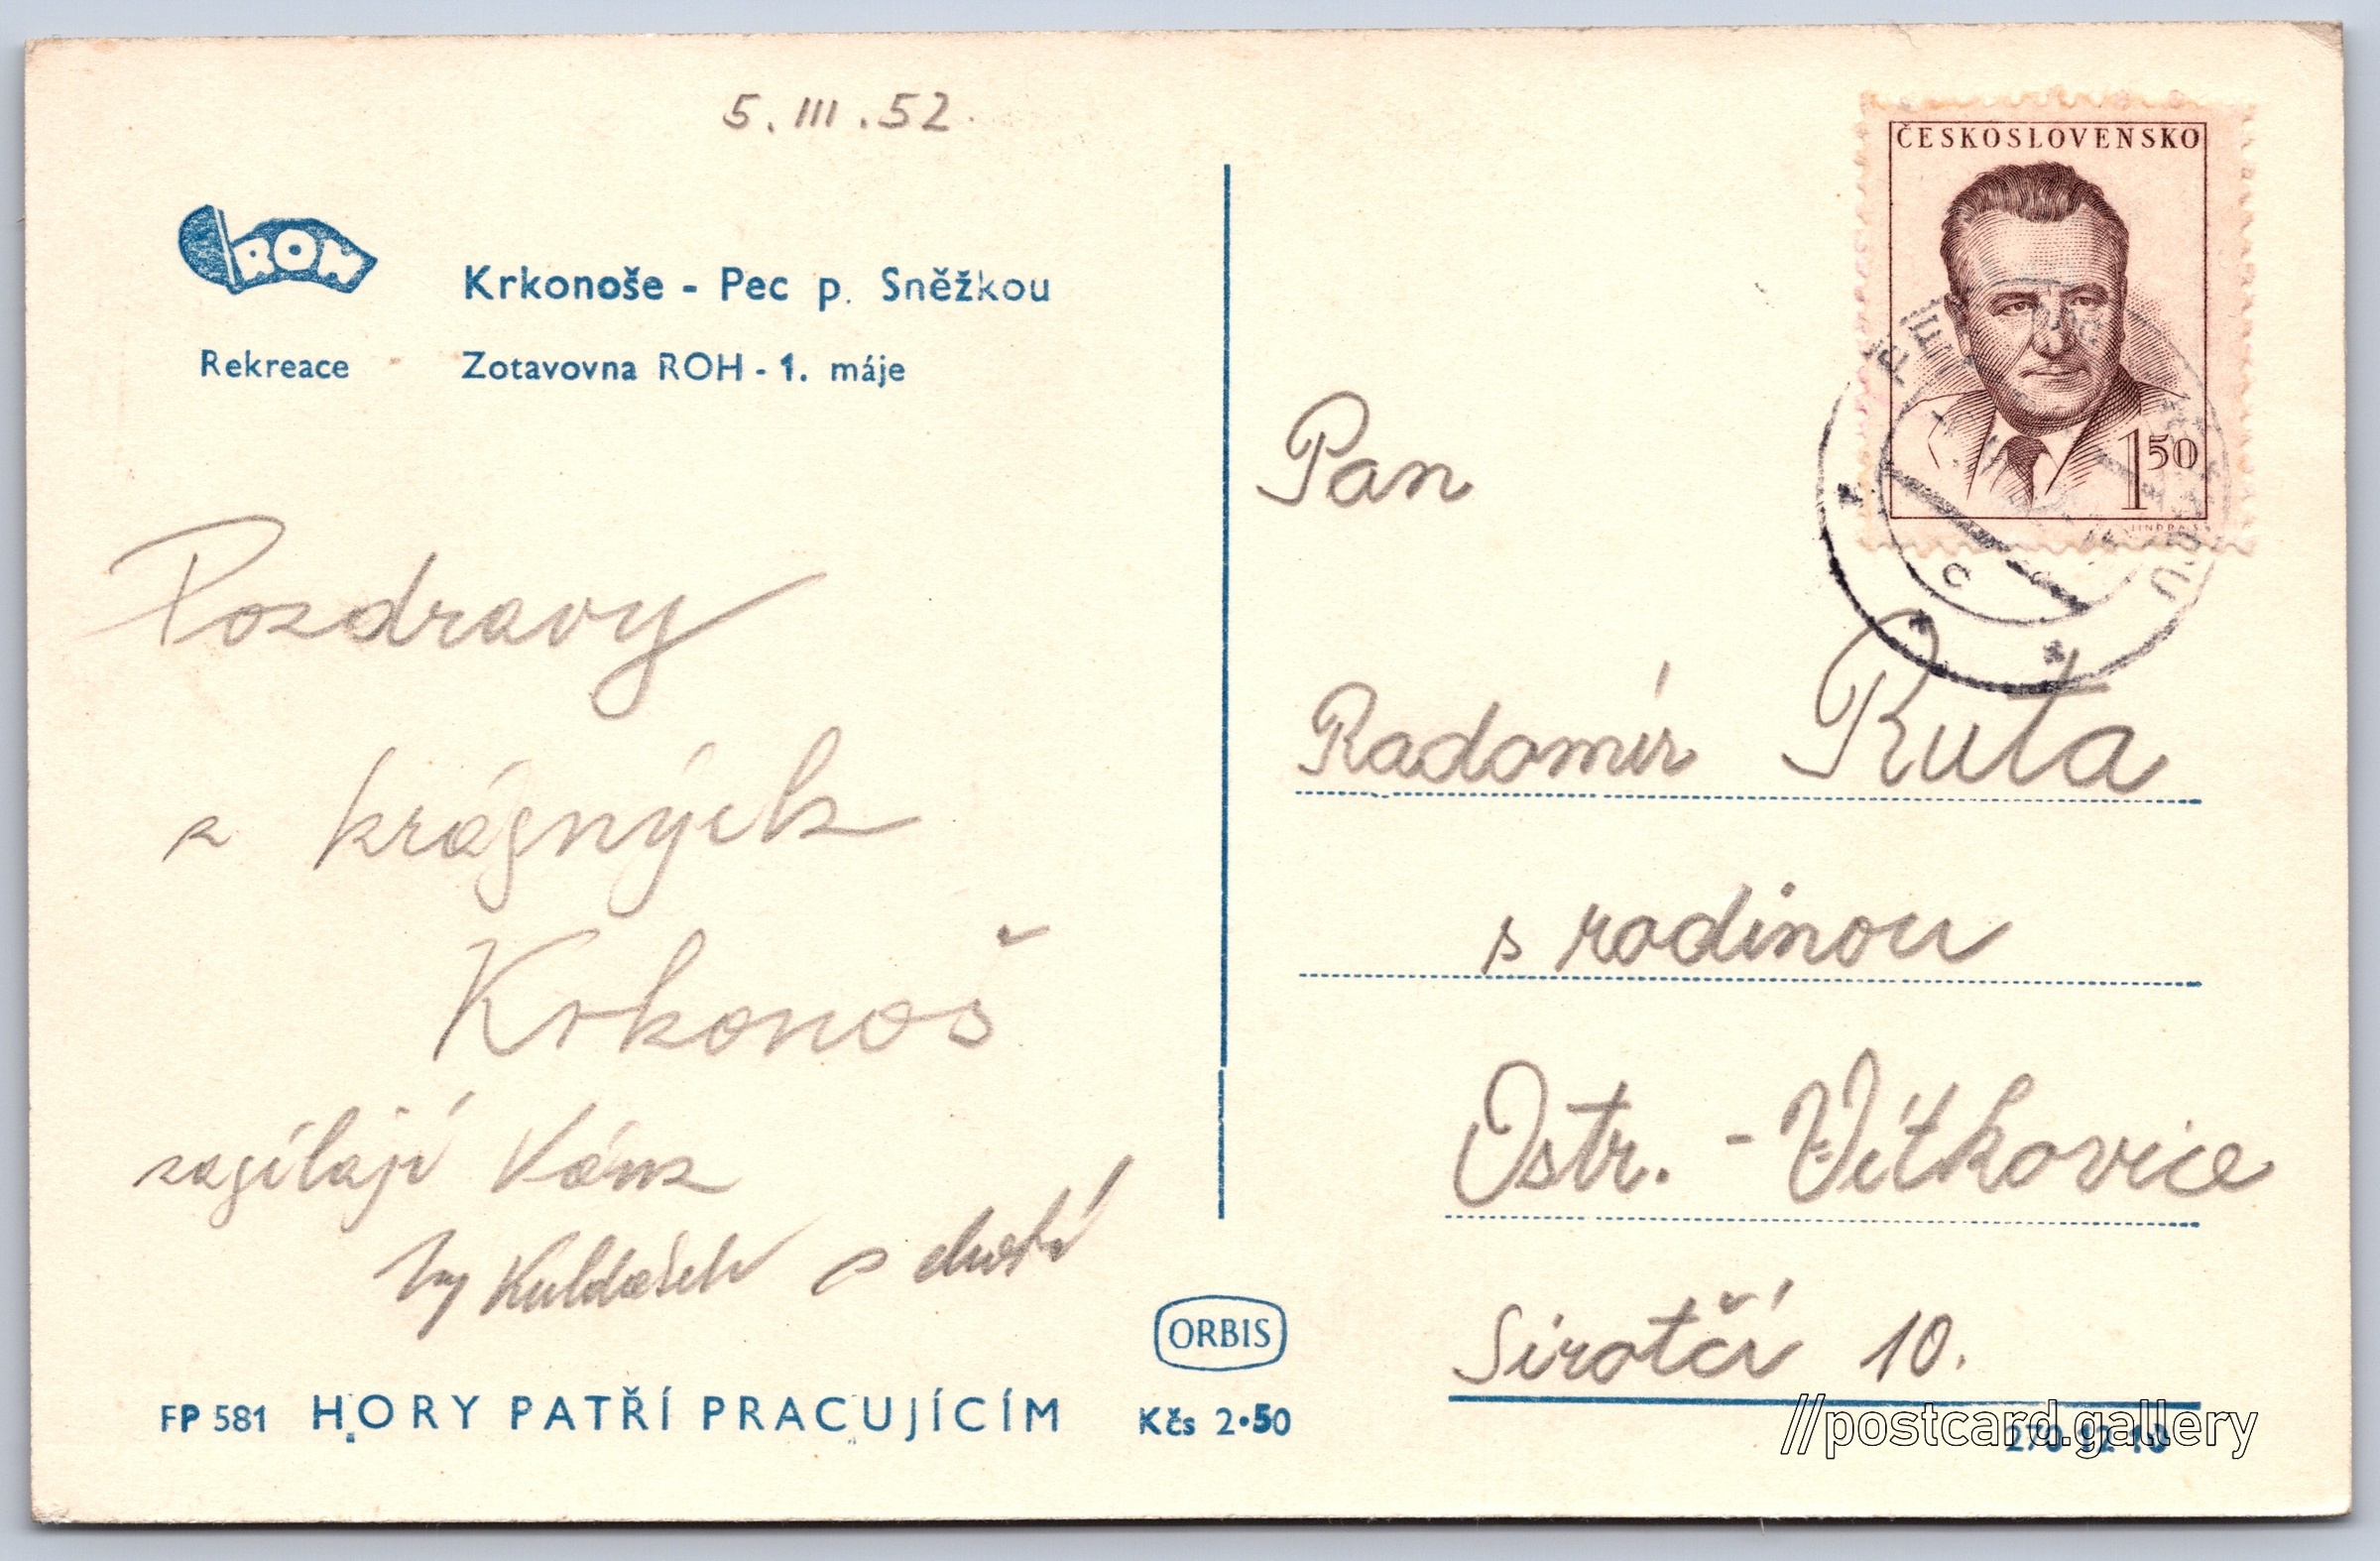 5. III. 52.
ROH
Rekreace
Krkonoše - Pec p. Sněžkou
Zotavovna ROH - 1. máje
Pozdravy
z krásných
Krkonoš
zasílají Vám
s chotí
FP 581 HORY PATŘÍ PRACUJÍCÍM
ORBIS
Kčs 2·50
ČESKOSLOVENSKO
1 50
JINDRA S.
Pan
Radomír Ruta
s rodinou
Ostr. - Vítkovice
Sirotčí 10.
//postcard.gallery